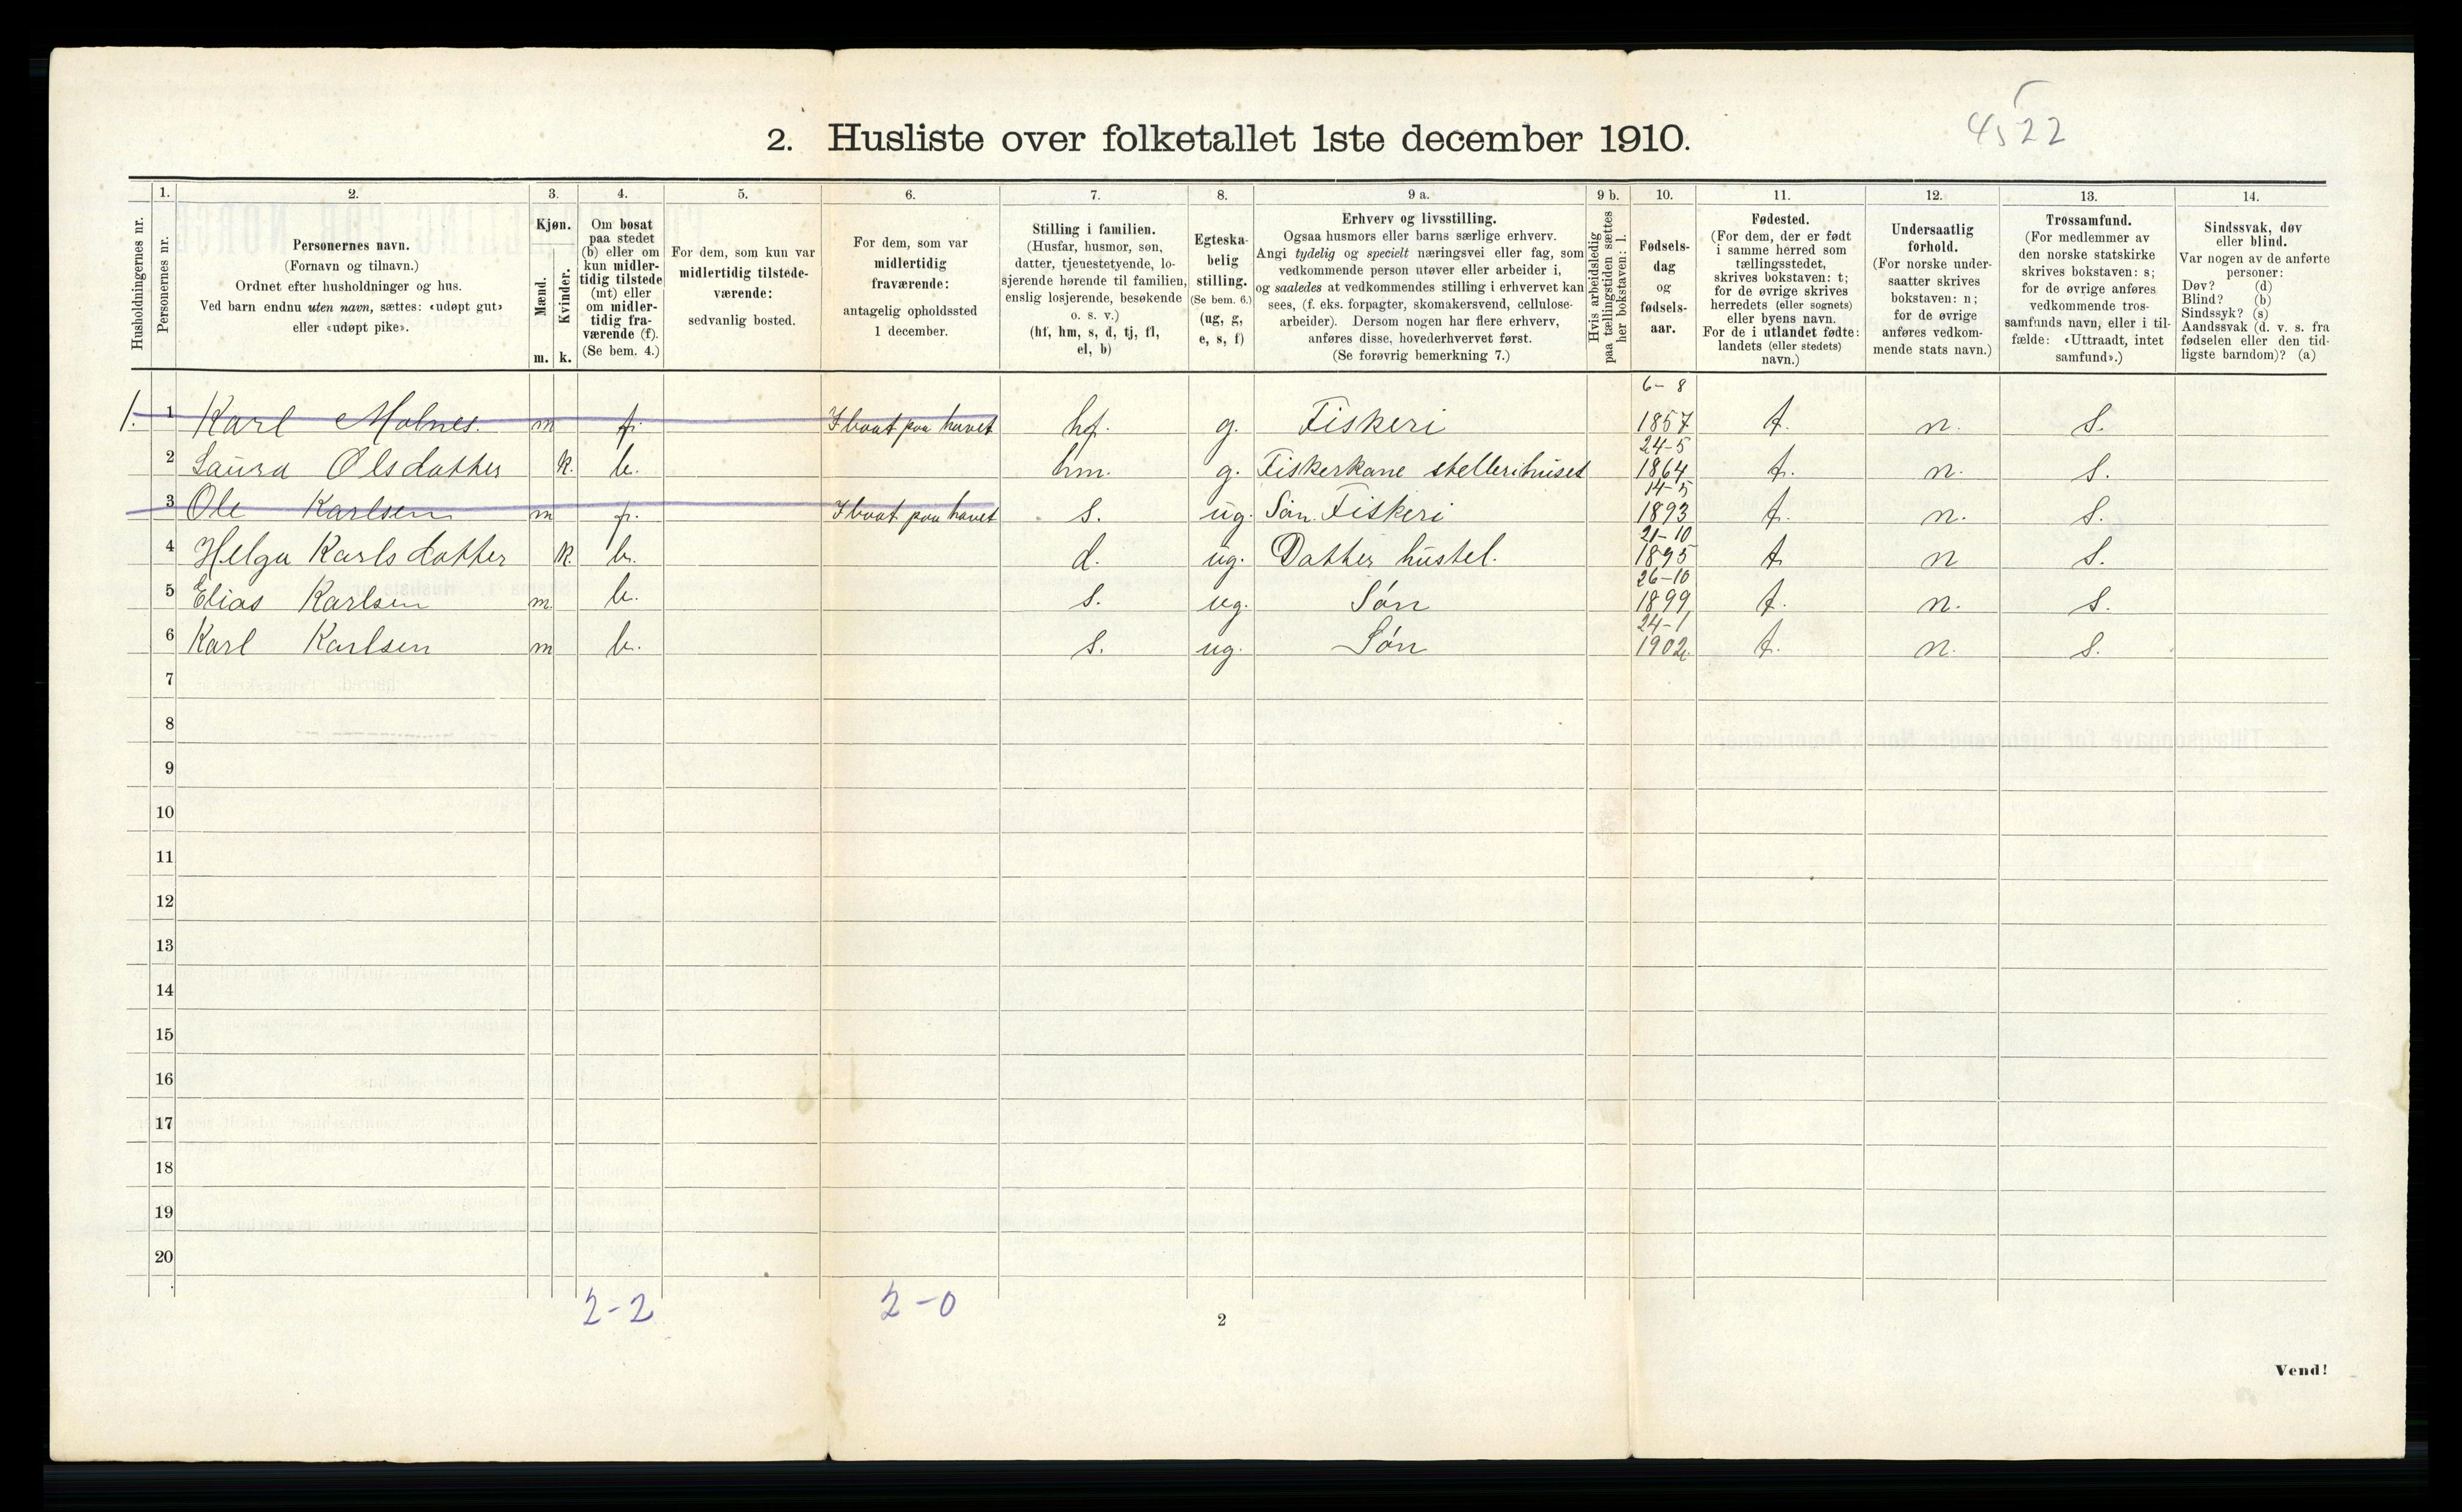 4522
2. Husliste over folketallet 1ste december 1910.
Husholdningernes nr.
1. Personernes nr.
2. Personernes navn. (Fornavn og tilnavn.) Ordnet efter husholdninger og hus. Ved barn endnu uten navn, sættes: «udøpt gut» eller «udøpt pike».
3. Kjøn. Mænd. m. Kvinder. k.
4. Om bosat paa stedet (b) eller om kun midlertidig tilstede (mt) eller om midlertidig fraværende (f). (Se bem. 4.)
5. For dem, som kun var midlertidig tilstedeværende: sedvanlig bosted.
6. For dem, som var midlertidig fraværende: antagelig opholdssted 1 december.
7. Stilling i familien. (Husfar, husmor, søn, datter, tjenestetyende, losjerende hørende til familien, enslig losjerende, besøkende o. s. v.) (hf, hm, s, d, tj, fl, el, b)
8. Egteskabelig stilling. (Se bem. 6.) (ug, g, e, s, f)
9 a. Erhverv og livsstilling. Ogsaa husmors eller barns særlige erhverv. Angi tydelig og specielt næringsvei eller fag, som vedkommende person utøver eller arbeider i, og saaledes at vedkommendes stilling i erhvervet kan sees, (f. eks. forpagter, skomakersvend, cellulosearbeider). Dersom nogen har flere erhverv, anføres disse, hovederhvervet først. (Se forøvrig bemerkning 7.)
9 b. Hvis arbeidsledig paa tællingstiden sættes her bokstaven: l.
10. Fødselsdag og fødselsaar.
11. Fødested. (For dem, der er født i samme herred som tællingsstedet, skrives bokstaven: t; for de øvrige skrives herredets (eller sognets) eller byens navn. For de i utlandet fødte: landets (eller stedets) navn.)
12. Undersaatlig forhold. (For norske undersaatter skrives bokstaven: n; for de øvrige anføres vedkommende stats navn.)
13. Trossamfund. (For medlemmer av den norske statskirke skrives bokstaven: s; for de øvrige anføres vedkommende trossamfunds navn, eller i tilfælde: «Uttraadt, intet samfund».)
14. Sindssvak, døv eller blind. Var nogen av de anførte personer: Døv? (d) Blind? (b) Sindssyk? (s) Aandssvak (d. v. s. fra fødselen eller den tidligste barndom)? (a)
1. 1 Karl Molnes. m f. I baat paa havet hf. g. Fiskeri 6-8 1857 t. n. s.
2 Laura Olsdatter k. b. hm. g. Fiskerkone steller i huset 24-5 1864 t. n. s.
3 Ole Karlsen m f. I baat paa havet s. ug. Søn. Fiskeri 14-5 1893 t. n. s.
4 Helga Karlsdatter k. b. d. ug. Datter hustel. 21-10 1895 t n s.
5 Elias Karlsen m. b. s. ug. Søn 26-10 1899 t. n. s.
6 Karl Karlsen m b. s. ug. Søn 24-1 1902 t. n. s.
7
8
9
10
11
12
13
14
15
16
17
18
19
20
2-2 2-0
2
Vend!